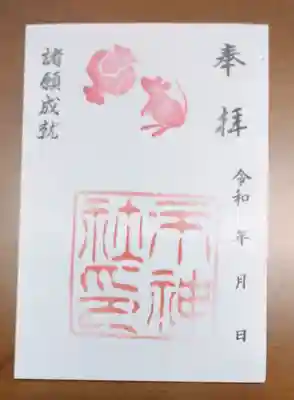 奉拝
令和 年 月 日
諸願成就
神
社印